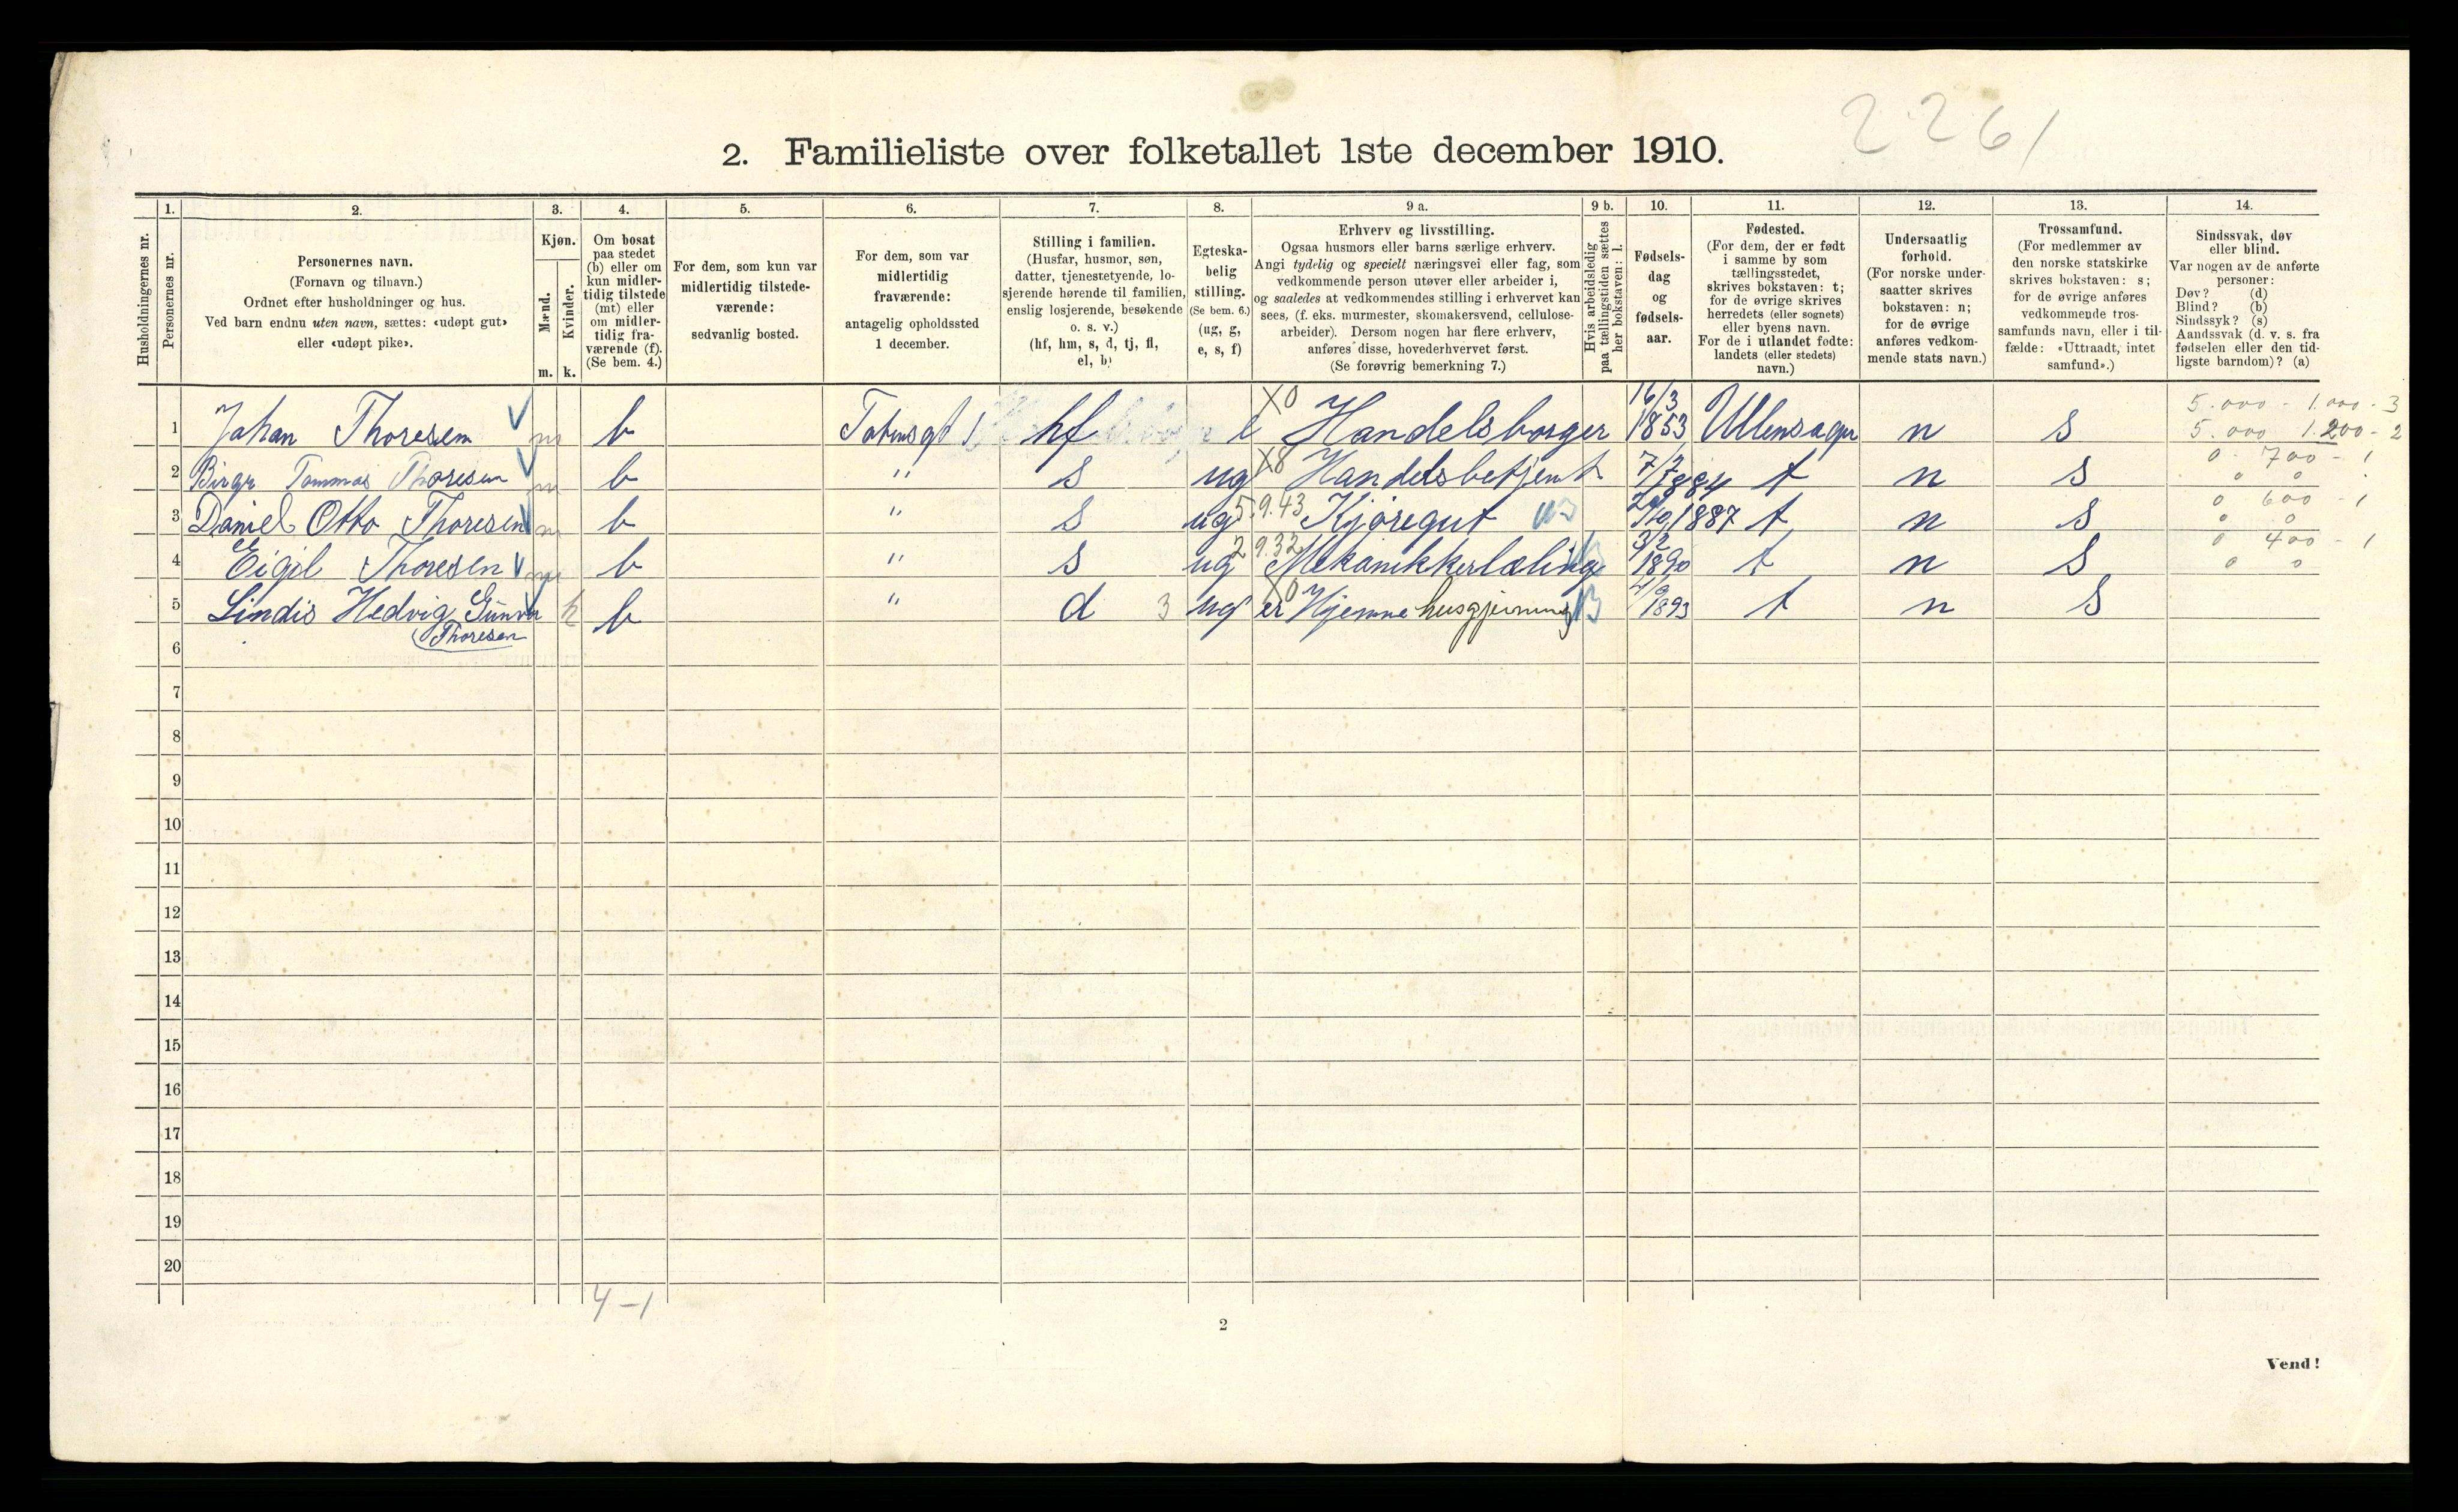 2261
2. Familieliste over folketallet 1ste december 1910.
Husholdningernes nr.
1.
Personernes nr.
2.
Personernes navn.
(Fornavn og tilnavn.)
Ordnet efter husholdninger og hus.
Ved barn endnu uten navn, sættes: «udøpt gut»
eller «udøpt pike».
3.
Kjøn.
Mænd.
Kvinder.
m. k.
4.
Om bosat
paa stedet
(b) eller om
kun midler-
tidig tilstede
(mt) eller
om midler-
tidig fra-
værende (f).
(Se bem. 4.)
5.
For dem, som kun var
midlertidig tilstede-
værende:
sedvanlig bosted.
6.
For dem, som var
midlertidig
fraværende:
antagelig opholdssted
1 december.
7.
Stilling i familien.
(Husfar, husmor, søn,
datter, tjenestetyende, lo-
sjerende hørende til familien,
enslig losjerende, besøkende
o. s. v.)
(hf, hm, s, d, tj, fl,
el, b)
8.
Egteska-
belig
stilling.
(Se bem. 6.)
(ug, g,
e, s, f)
9 a.
Erhverv og livsstilling.
Ogsaa husmors eller barns særlige erhverv.
Angi tydelig og specielt næringsvei eller fag, som
vedkommende person utøver eller arbeider i,
og saaledes at vedkommendes stilling i erhvervet kan
sees, (f. eks. murmester, skomakersvend, cellulose-
arbeider). Dersom nogen har flere erhverv,
anføres disse, hovederhvervet først.
(Se forøvrig bemerkning 7.)
9 b.
Hvis arbeidsledig
paa tællingstiden sættes
her bokstaven: l.
10.
Fødsels-
dag
og
fødsels-
aar.
11.
Fødested.
(For dem, der er født
i samme by som
tællingsstedet,
skrives bokstaven: t;
for de øvrige skrives
herredets (eller sognets)
eller byens navn.
For de i utlandet fødte:
landets (eller stedets)
navn.)
12.
Undersaatlig
forhold.
(For norske under-
saatter skrives
bokstaven: n;
for de øvrige
anføres vedkom-
mende stats navn.)
13.
Trossamfund.
(For medlemmer av
den norske statskirke
skrives bokstaven: s;
for de øvrige anføres
vedkommende tros-
samfunds navn, eller i til-
fælde: «Uttraadt, intet
samfund».)
14.
Sindssvak, døv
eller blind.
Var nogen av de anførte
personer:
Døv? (d)
Blind? (b)
Sindssyk? (s)
Aandssvak (d. v. s. fra
fødselen eller den tid-
ligste barndom)? (a)
1 Johan Thoresen m b hf e X0 Handelsborger 16/3 1853 n s 5.000 - 1.000 - 3
5.000 1.200 - 2
2 Tommas Thoresen m b " s ug X8 Handelsbetjent 1884 t n s 0 700 - 1
0 0
3 Daniel Otto Thoresen m b " s ug 5.9.43 Kjøregut 1887 t n s 0 600 - 1
0 0
4 Eigil Thoresen m b " s ug 2 9.32 3/2 1890 t n s 0 400 - 1
0 0
5 Lindis Hedvig k b " d 3 ug X0 Hjemme husgjerning 1893 t n s
Thoresen
6
7
8
9
10
11
12
13
14
15
16
17
18
19
20
4-1
2
Vend!